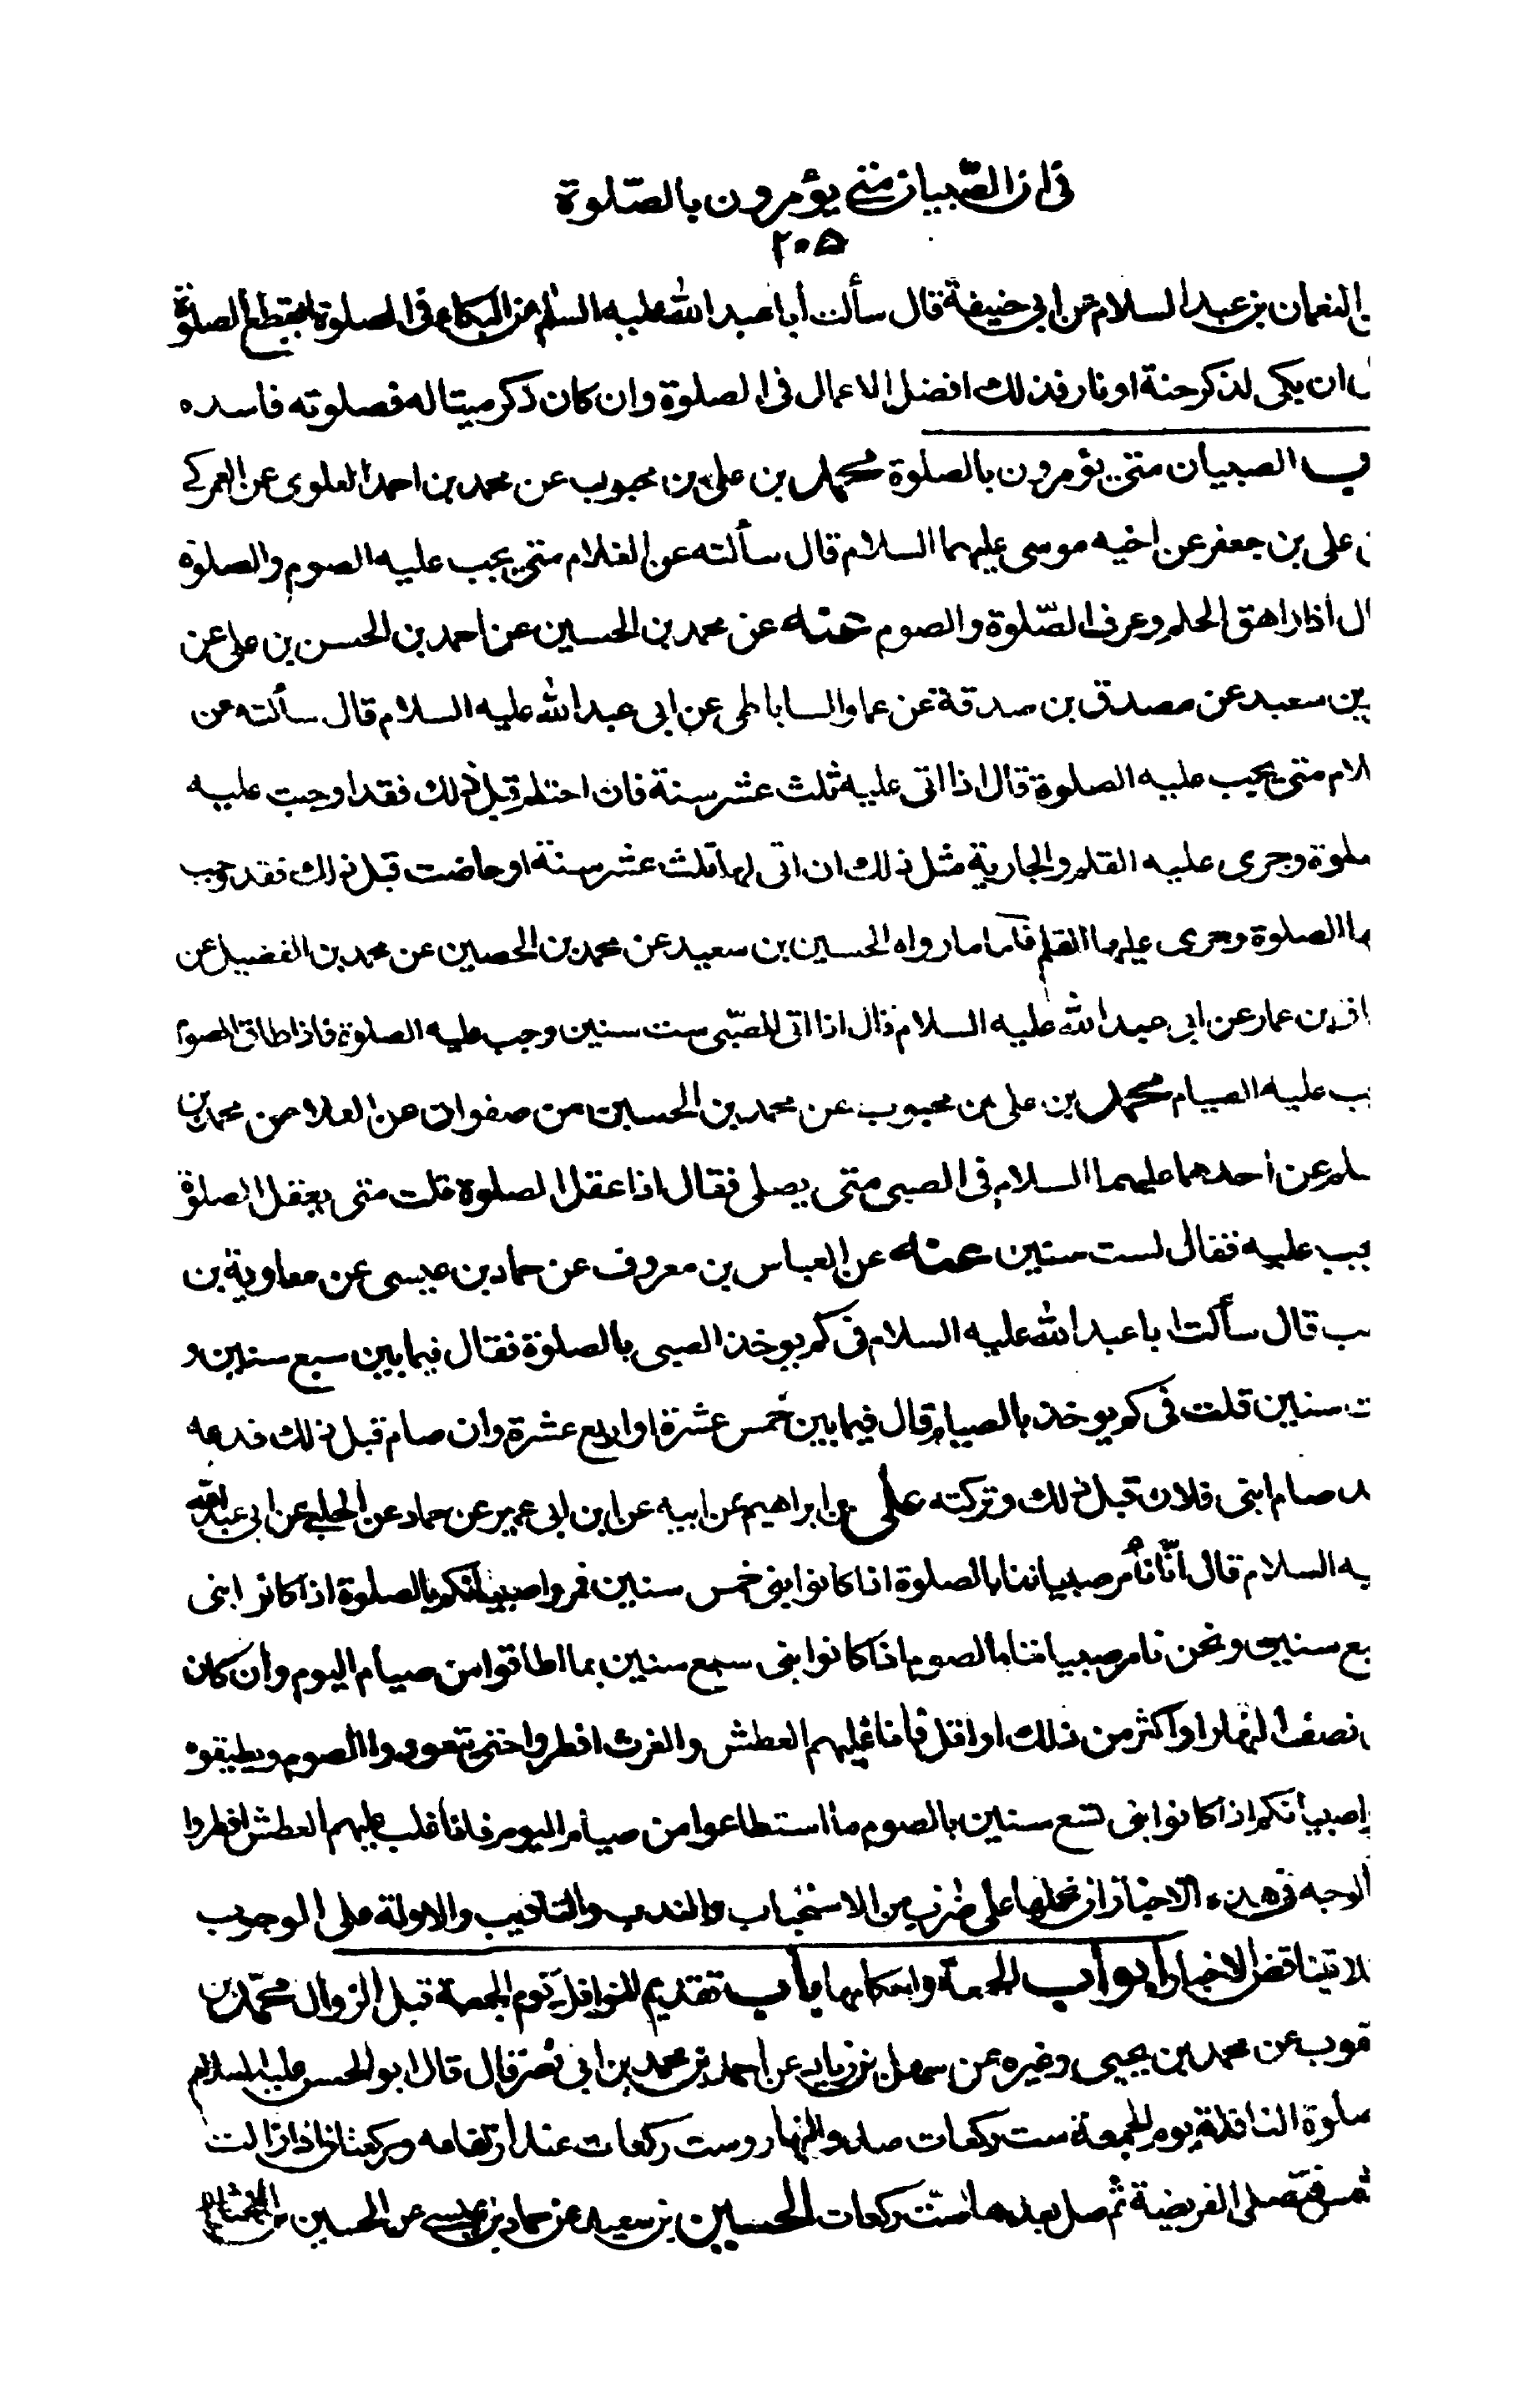 فى ان الصّبيان متى يؤمرون بالصّلوة
٢٠۵
النعمان بن عبد السلام عن ابى حنيفة قال سألت أبا عبد الله عليه السلم عن البكاء فى الصلوة ايقطع الصلوة
ان بكى لذكر جنة او نار فذلك افضل الاعمال فى الصلوة وان كان ذكر ميتا له فصلوته فاسده
الصبيان متى يؤمرون بالصلوة محمد بن على بن محبوب عن محمد بن احمد العلوى عن العمركى
على بن جعفر عن اخيه موسى عليهما السلام قال سألته عن الغلام متى يجب عليه الصوم والصلوة
ال اذا راهق الحلم وعرف الصّلوة والصوم عنه عن محمد بن الحسين عن احمد بن الحسن بن على عن
بن سعيد عن مصدق بن صدقة عن عمار الساباطى عن ابى عبد الله عليه السلام قال سألته عن
لام متى يجب عليه الصلوة قال اذا اتى عليه ثلث عشر سنة فان احتلم قبل ذلك فقد اوجبت عليه
صلوة وجرى عليه القلم والجارية مثل ذلك ان اتى لها ثلث عشر سنة او حاضت قبل ذلك فقد وجب
ها الصلوة وجرى عليها القلم فامّا ما رواه الحسين بن سعيد عن محمد بن الحصين عن محمد بن الفضيل عن
بن عمار عن ابى عبد الله عليه السلام قال اذا اتى للصّبى ست سنين وجب عليه الصلوة فاذا طاق الصوم
ب عليه الصيام محمد بن على بن محبوب عن محمد بن الحسين عن صفوان عن العلا عن محمد بن
سلم عن احدهما عليهما السلام فى الصبى متى يصلى فقال اذا عقل الصلوة قلت متى يعقل الصلوة
جب عليه فقال لست سنين عنه عن العباس بن معروف عن حماد بن عيسى عن معاوية بن
هب قال سألت ابا عبد الله عليه السلام فى كم يوخذ الصبى بالصلوة فقال فيما بين سبع سنين و
ت سنين قلت فى كم يوخذ بالصيام قال فيما بين خمس عشرة او اربع عشرة وان صام قبل ذلك فدعه
د صام ابنى فلان قبل ذلك وتركته على بن ابراهيم عن ابيه عن ابن ابى عمير عن حماد عن الحلبى عن ابى عبد الله
يه السلام قال انّا نأمر صبياننا بالصلوة اذا كانوا بنى خمس سنين فمروا صبيانكم بالصلوة اذا كانوا بنى
بع سنين ونحن نامر صبياننا بالصوم اذا كانوا بنى سبع سنين بما اطاقوا من صيام اليوم وان كان
نصف النهار او اكثر من ذلك او اقل فاذا غلبهم العطش والغرث افطروا حتى يتعودوا الصوم ويطيقوه
وا صبيانكم اذا كانوا بنى تسع سنين بالصوم ما استطاعوا من صيام اليوم فاذا غلب عليهم العطش افطروا
الوجه فى هذه الاخبار ان نحملها على ضرب من الاستحباب والندب والتاديب والاولة على الوجوب
لا تتناقض الاخبار ابواب الجمعة واحكامها باب تقديم النوافل يوم الجمعة قبل الزوال محمّد بن
قوب عن محمد بن يحيى وغيره عن سهل بن زياد عن احمد بن محمد بن ابى نصر قال قال ابو الحسن عليه السلام
صلوة النافلة يوم الجمعة ست ركعات صدر النهار وست ركعات عند ارتفاعه وركعتان اذا زالت
شمس ثم صلى الفريضة ثم صل بعدها ست ركعات الحسين بن سعيد عن حماد بن عيسى عن الحسين بن المختار